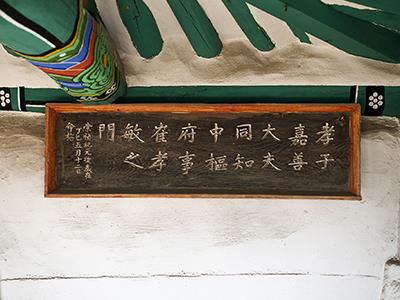 孝子
嘉善
大夫
同知
中樞
府事
崔孝
敏之
門
崇禎紀元後歲在
五月十 日
命旌